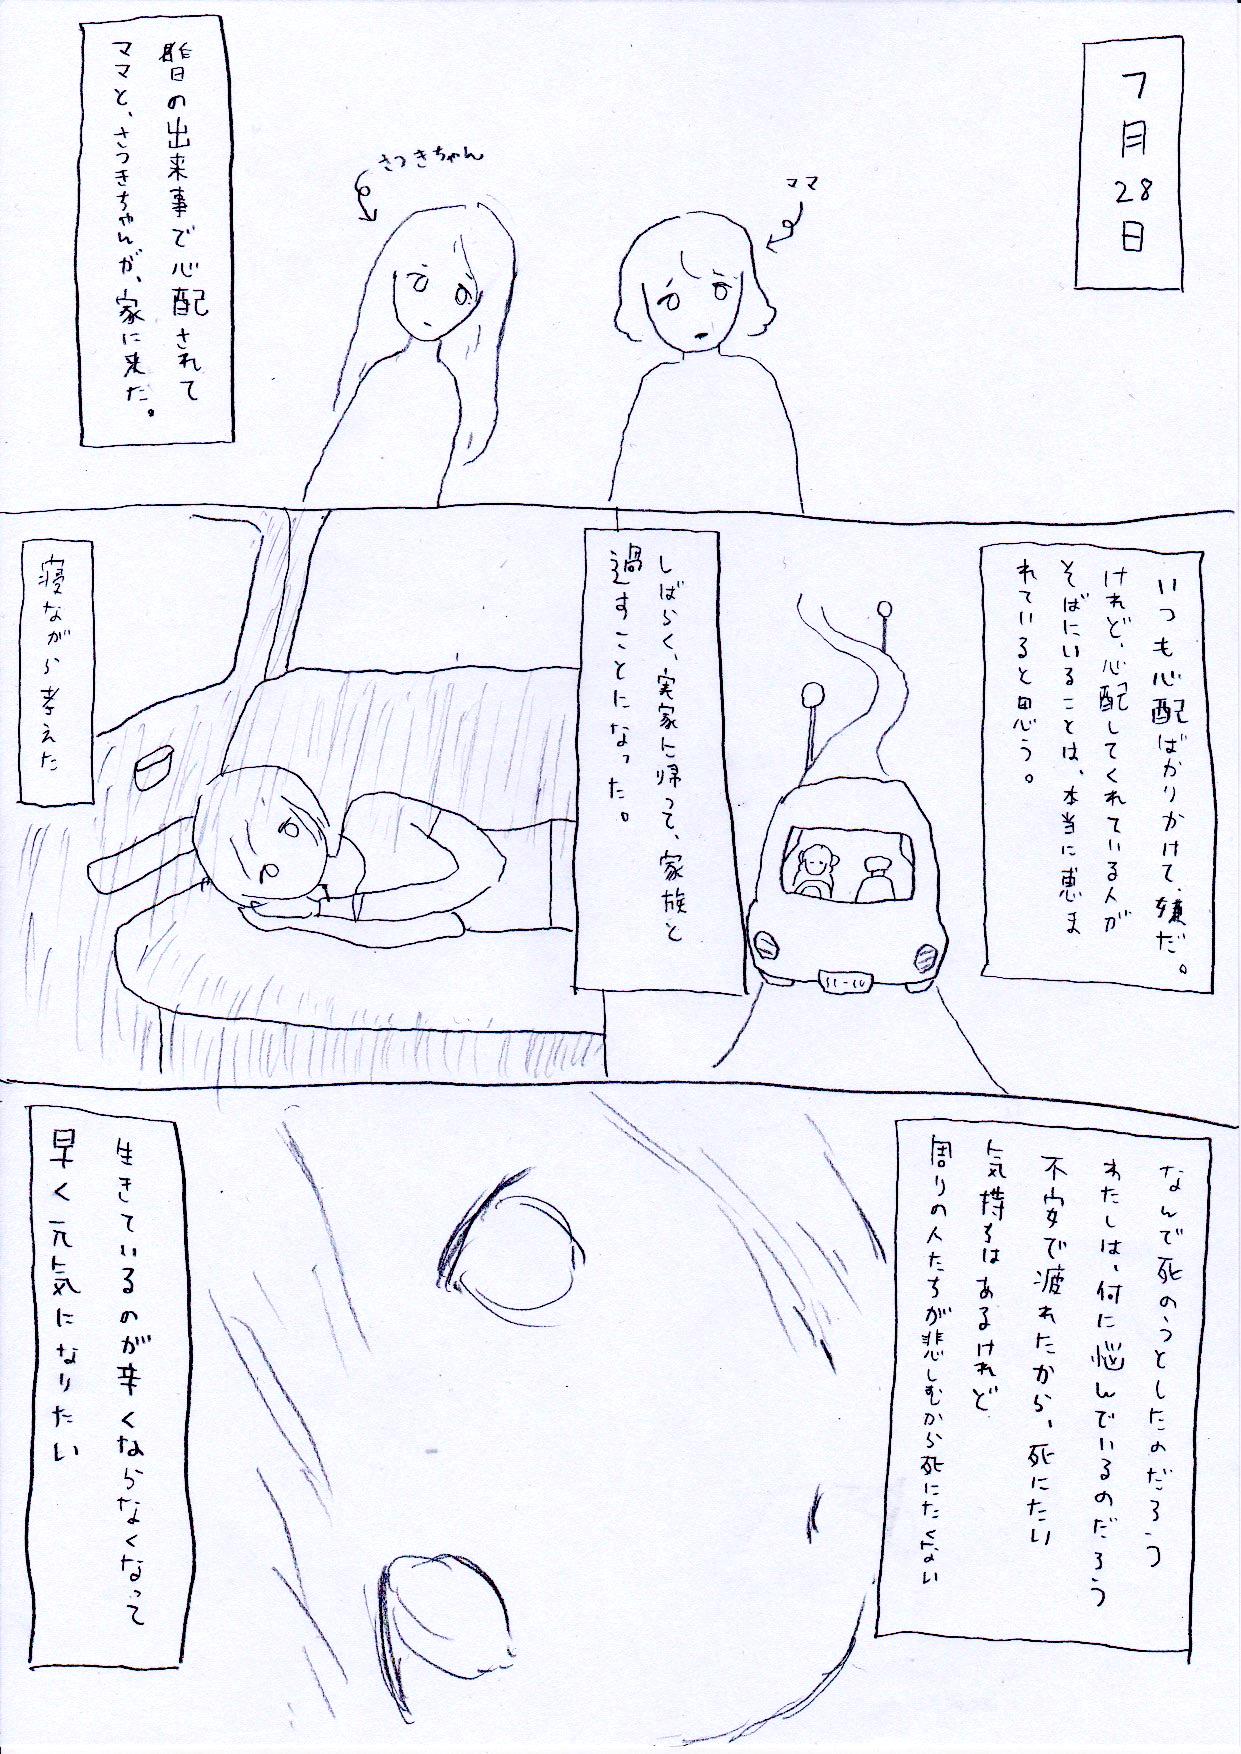 7月28日
ママ
さつきちゃん
昨日の出来事で心配されて
ママと、さつきちゃんが、家に来た。
いつも心配ばかりかけて、嫌だ。
けれど、心配してくれている人が
そばにいることは、本当に恵ま
れていると思う。
しばらく、実家に帰って、家族と
過すことになった。
寝ながら考えた
なんで死のうとしたのだろう
わたしは、何に悩んでいるのだろう
不安で疲れたから、死にたい
気持ちはあるけれど
周りの人たちが悲しむから死にたくない
生きているのが辛くならなくなって
早く元気になりたい